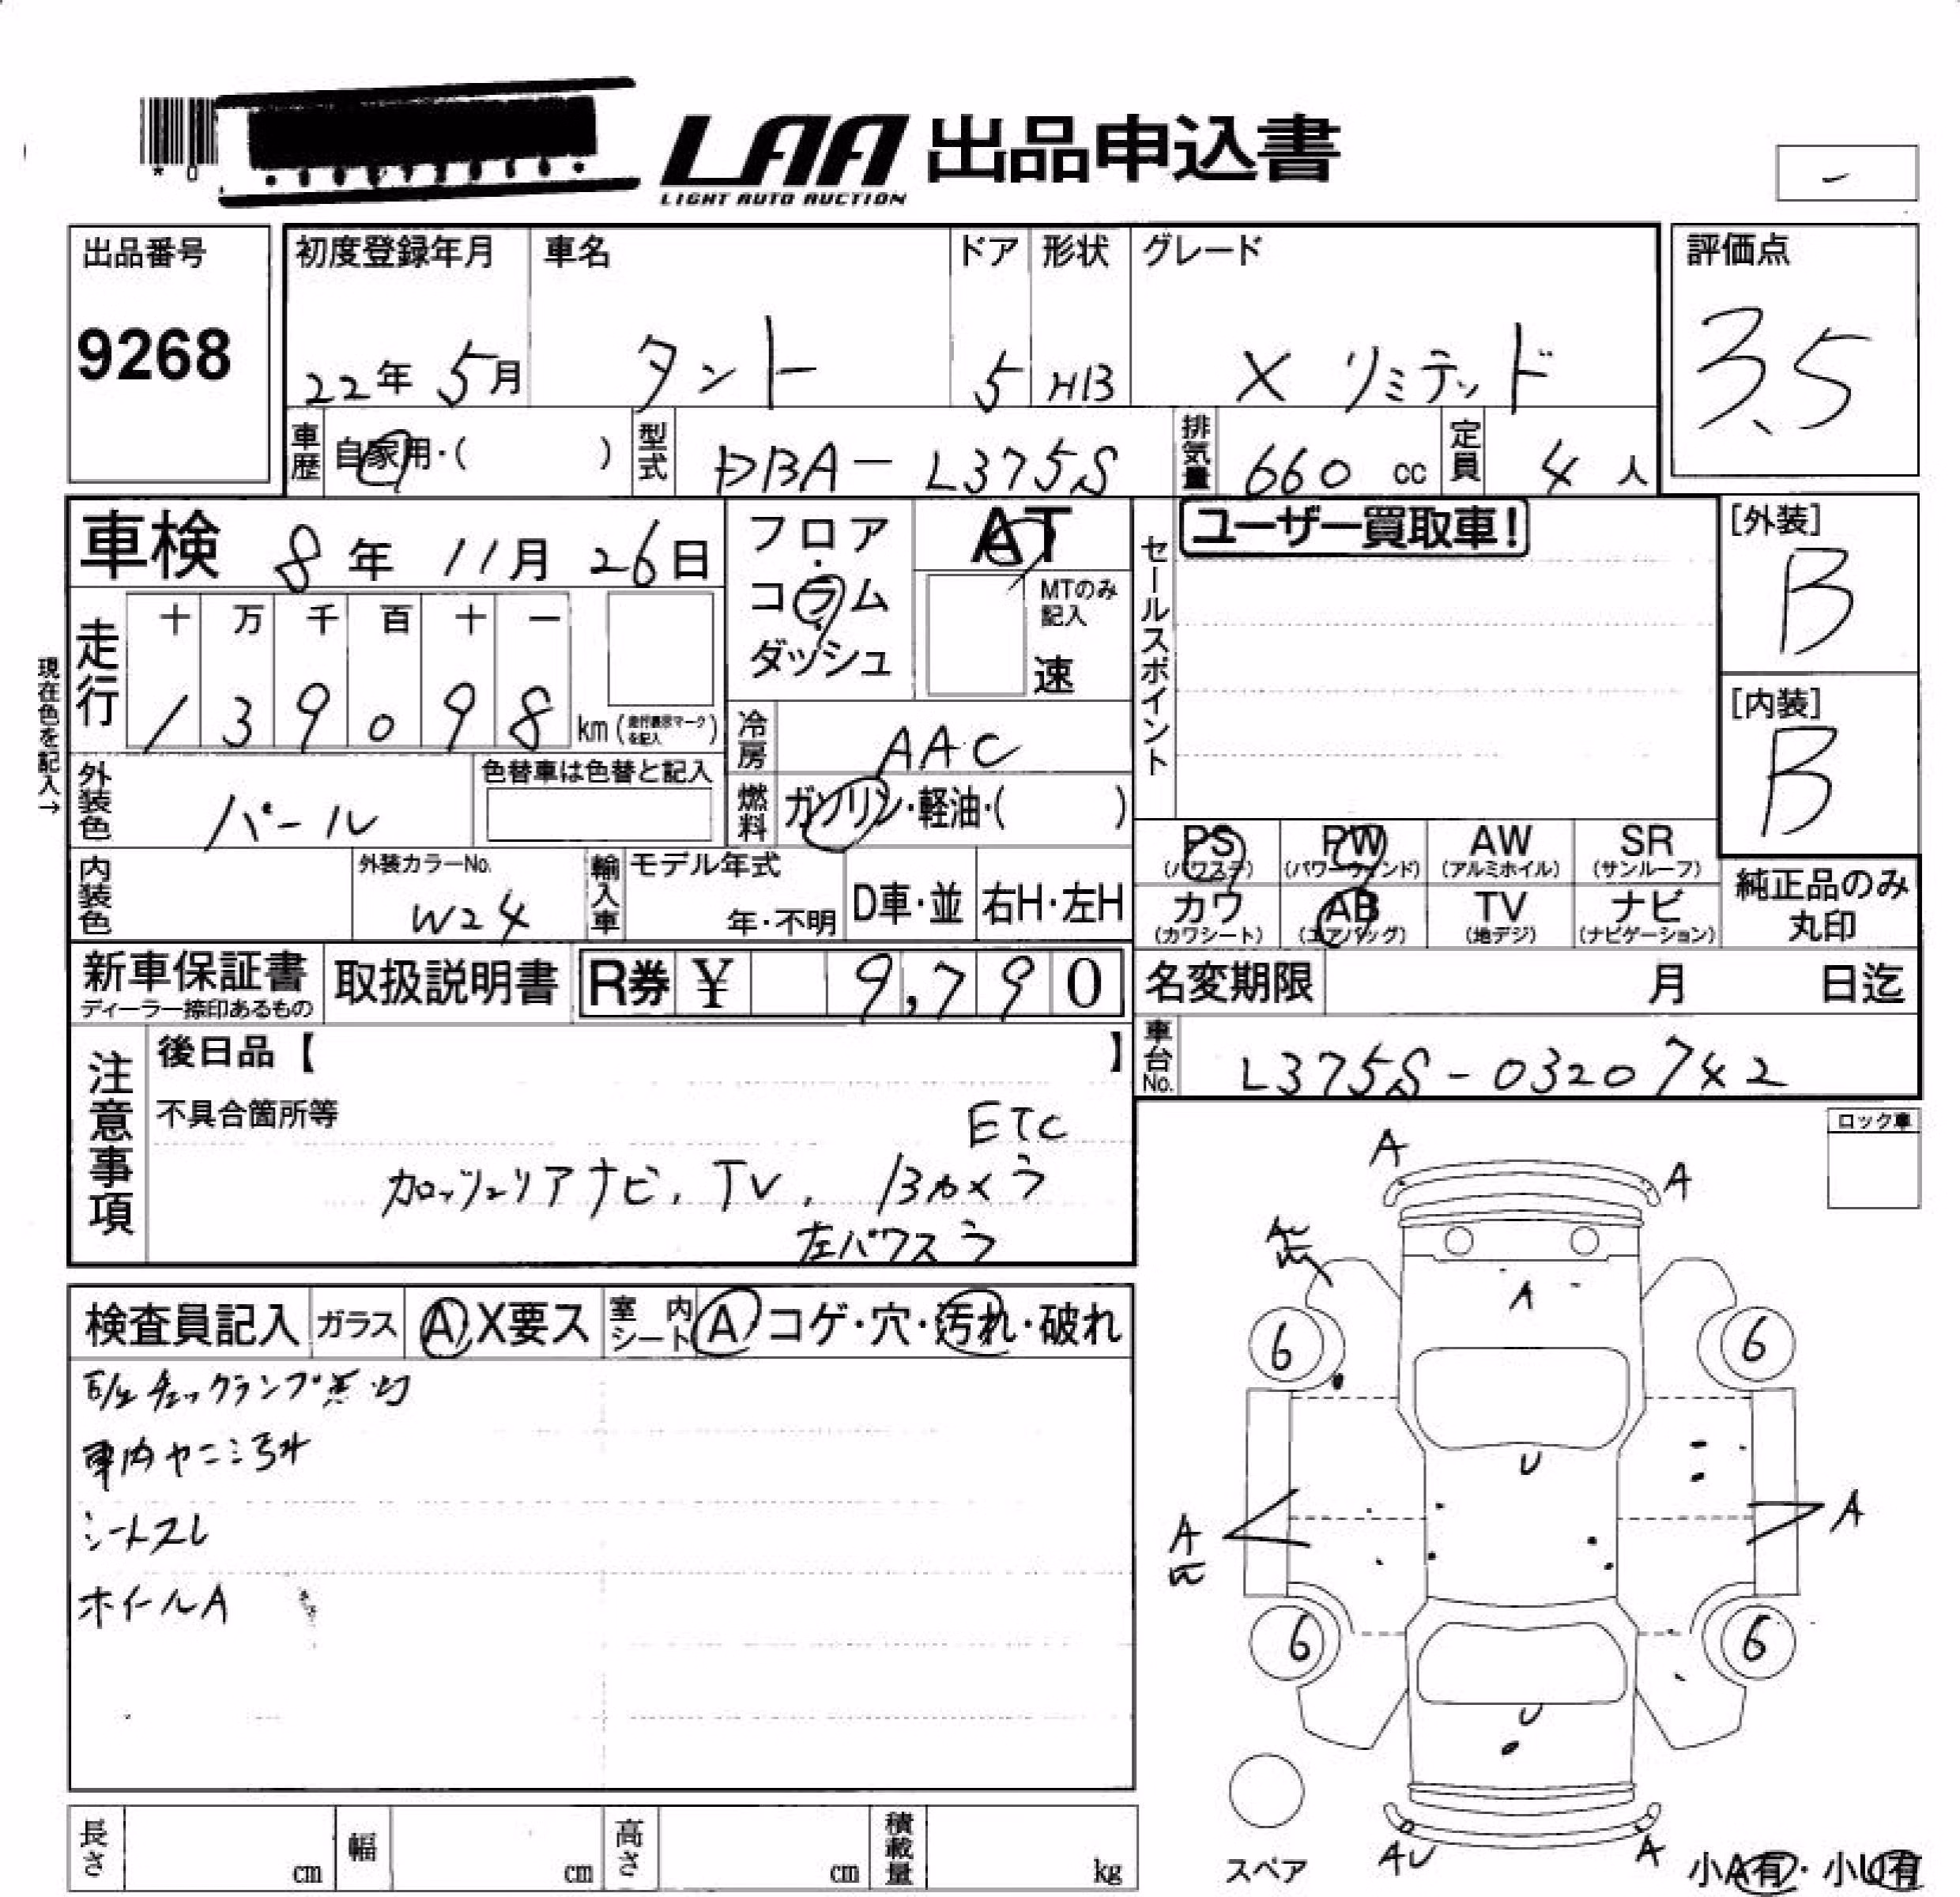 * 0
LAA 出品申込書
LIGHT AUTO AUCTION
-
出品番号
9268
初度登録年月
22年 5月
車名
タント
ドア
5
形状
HB
グレード
X リミテッド
評価点
3.5
車歴 自家用・( )
型式 DBA-L375S
排気量 660 cc
定員 4 人
車検 8年 11月 26日
フロア・コラム・ダッシュ
AT
MTのみ記入
速
セールスポイント
ユーザー買取車!
[外装]
B
[内装]
B
現在色を記入→
走行
十 万 千 百 十 一
1 3 9 0 9 8 km (走行表示マークを記入)
冷房 AAC
外装色 パール
色替車は色替と記入
燃料 ガソリン・軽油・( )
内装色
外装カラーNo.
W24
輸入車
モデル年式
年・不明
D車・並
右H・左H
PS (パワステ)
PW (パワーウィンド)
AW (アルミホイル)
SR (サンルーフ)
カワ (カワシート)
AB (エアバッグ)
TV (地デジ)
ナビ (ナビゲーション)
純正品のみ丸印
新車保証書
ディーラー捺印あるもの
取扱説明書
R券 ¥ 9,790
名変期限 月 日迄
車台No. L375S-0320742
注意事項
後日品【 】
不具合箇所等
ETC
カロッツェリアナビ, TV, Bカメラ
左パワスラ
ロック車
検査員記入
ガラス A X要ス
室内シート A コゲ・穴・汚れ・破れ
チェックランプ
シートスレ
ホイールA
A
A
A
6
6
U
A
A
6
6
U
AU
A
スペア
小A有・小U有
長さ cm
幅 cm
高さ cm
積載量 kg